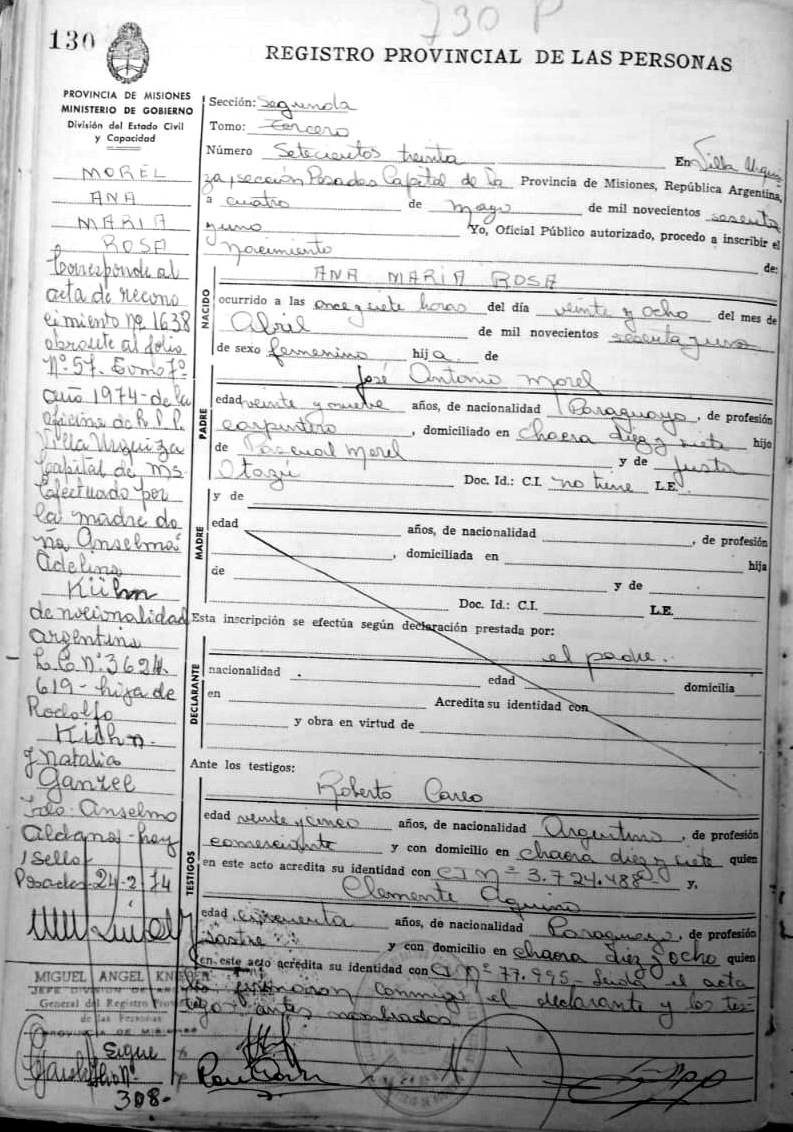 730 P
130
REGISTRO PROVINCIAL DE LAS PERSONAS
PROVINCIA DE MISIONES
MINISTERIO DE GOBIERNO
División del Estado Civil
y Capacidad
MOREL
ANA
MARIA
ROSA
Corresponde al
acta de recono
cimiento nº 1638
obrante al folio
Nº 57. Tomo 7º
año 1974 - de la
oficina de R.P.P.
Villa Urquiza
Capital de Ms.
Efectuado por
la madre do
ña Anselma
Adelina
Kühn
de nacionalidad
argentina
L.C. Nº 3.624.
619 - hija de
Rodolfo
Kühn.
y Natalia
Ganzel
Fdo. Anselmo
Aldana - hay
1 sello
Posadas 24-2-74
MIGUEL ANGEL
JEFE DIVISION DE
General del Registro Prov
de las Personas
PROVINCIA DE MISIONES
Sigue
308-
Sección: Segunda
Tomo: Tercero
Número Setecientos treinta En Villa Urqui
za, sección Posadas Capital de la Provincia de Misiones, República Argentina,
a cuatro de mayo de mil novecientos sesenta
y uno Yo, Oficial Público autorizado, procedo a inscribir el
nacimiento de:
NACIDO
ANA MARIA ROSA
ocurrido a las once y siete horas del día veinte y ocho del mes de
Abril de mil novecientos sesenta y uno
de sexo femenino hija de
PADRE
José Antonio Morel
edad veinte y nueve años, de nacionalidad Paraguaya, de profesión
carpintero, domiciliado en chacra diez y siete hijo
de Pascual Morel y de Justa
Otazú Doc. Id.: C.I. no tiene L.E.
MADRE
y de
edad años, de nacionalidad , de profesión
, domiciliada en hija
de y de
Doc. Id.: C.I. L.E.
Esta inscripción se efectúa según declaración prestada por:
DECLARANTE
el padre.
nacionalidad edad domicilia
en Acredita su identidad con
y obra en virtud de
Ante los testigos:
TESTIGOS
Roberto
edad veinte y cinco años, de nacionalidad Argentino, de profesión
comerciante y con domicilio en chacra diez y siete quien
en este acto acredita su identidad con C I Nº 3.724.488 y,
Clemente Aquino
edad cincuenta años, de nacionalidad Paraguayo, de profesión
Sastre y con domicilio en chacra diez y ocho quien
en este acto acredita su identidad con C I Nº 77.995 - Leída el acta
firmaron conmigo el declarante y los tes-
tigos antes nombrados